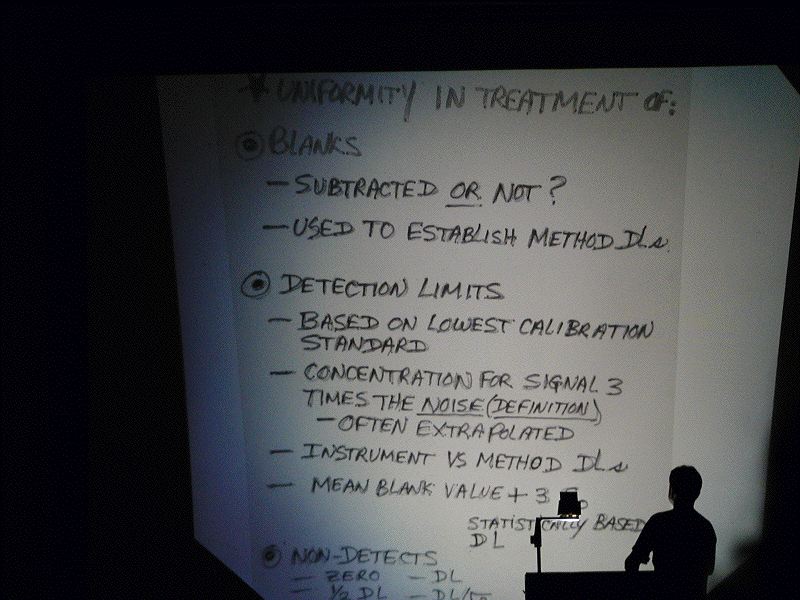 * UNIFORMITY IN TREATMENT OF:
BLANKS
- SUBTRACTED OR NOT?
- USED TO ESTABLISH METHOD DLs
DETECTION LIMITS
- BASED ON LOWEST CALIBRATION
STANDARD
- CONCENTRATION FOR SIGNAL 3
TIMES THE NOISE (DEFINITION)
- OFTEN EXTRAPOLATED
- INSTRUMENT VS METHOD DLs
- MEAN BLANK VALUE + 3
STATISTICALLY BASED
DL
NON-DETECTS
- ZERO - DL
- 1/2 DL